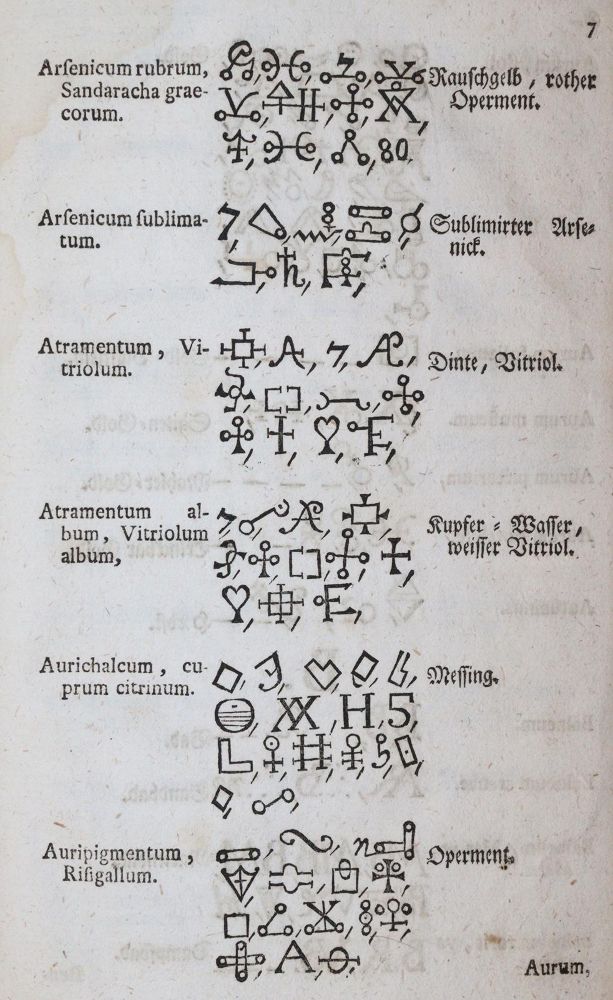 7
Arſenicum rubrum,
Sandaracha grae-
corum.
80.
Rauſchgelb, rother
Operment.
Arſenicum ſublima-
tum.
Sublimirter Arſe-
nick.
Atramentum, Vi-
triolum.
Dinte, Vitriol.
Atramentum al-
bum, Vitriolum
album,
Kupfer-Waſſer,
weiſſer Vitriol.
Aurichalcum, cu-
prum citrinum.
Meſſing.
Auripigmentum,
Riſigallum.
Operment.
Aurum,